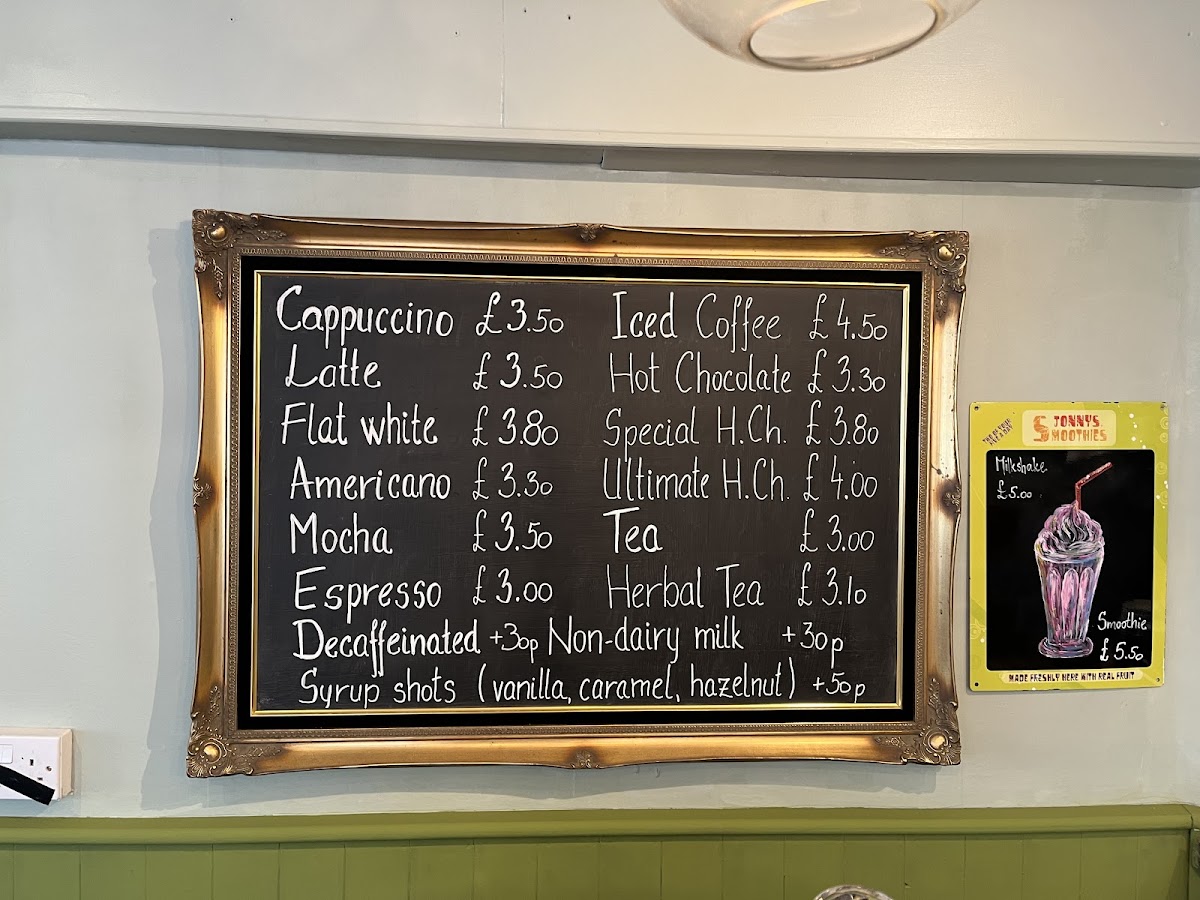 Cappuccino £3.50
Latte £3.50
Flat white £3.80
Americano £3.30
Mocha £3.50
Espresso £3.00
Iced Coffee £4.50
Hot Chocolate £3.30
Special H.Ch. £3.80
Ultimate H.Ch. £4.00
Tea £3.00
Herbal Tea £3.10
Decaffeinated +30p Non-dairy milk +30p
Syrup shots (vanilla, caramel, hazelnut) +50p
JONNYS
SMOOTHIES
Milkshake
£5.00
Smoothie
£5.50
MADE FRESHLY HERE WITH REAL FRUIT